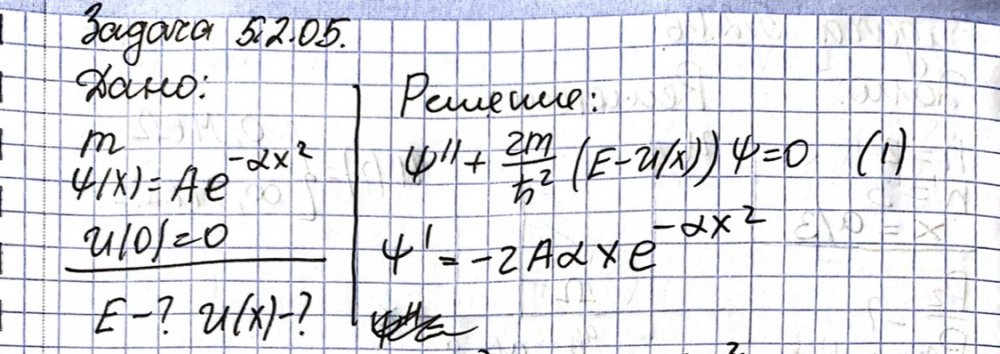 Задача 5.2.05.
Дано:
m
ψ(x) = Ae^{-αx²}
u(0) = 0
E - ? u(x) - ?
Решение:
ψ'' + \frac{2m}{ħ²} (E - u(x)) ψ = 0 (1)
ψ' = -2Aαxe^{-αx²}